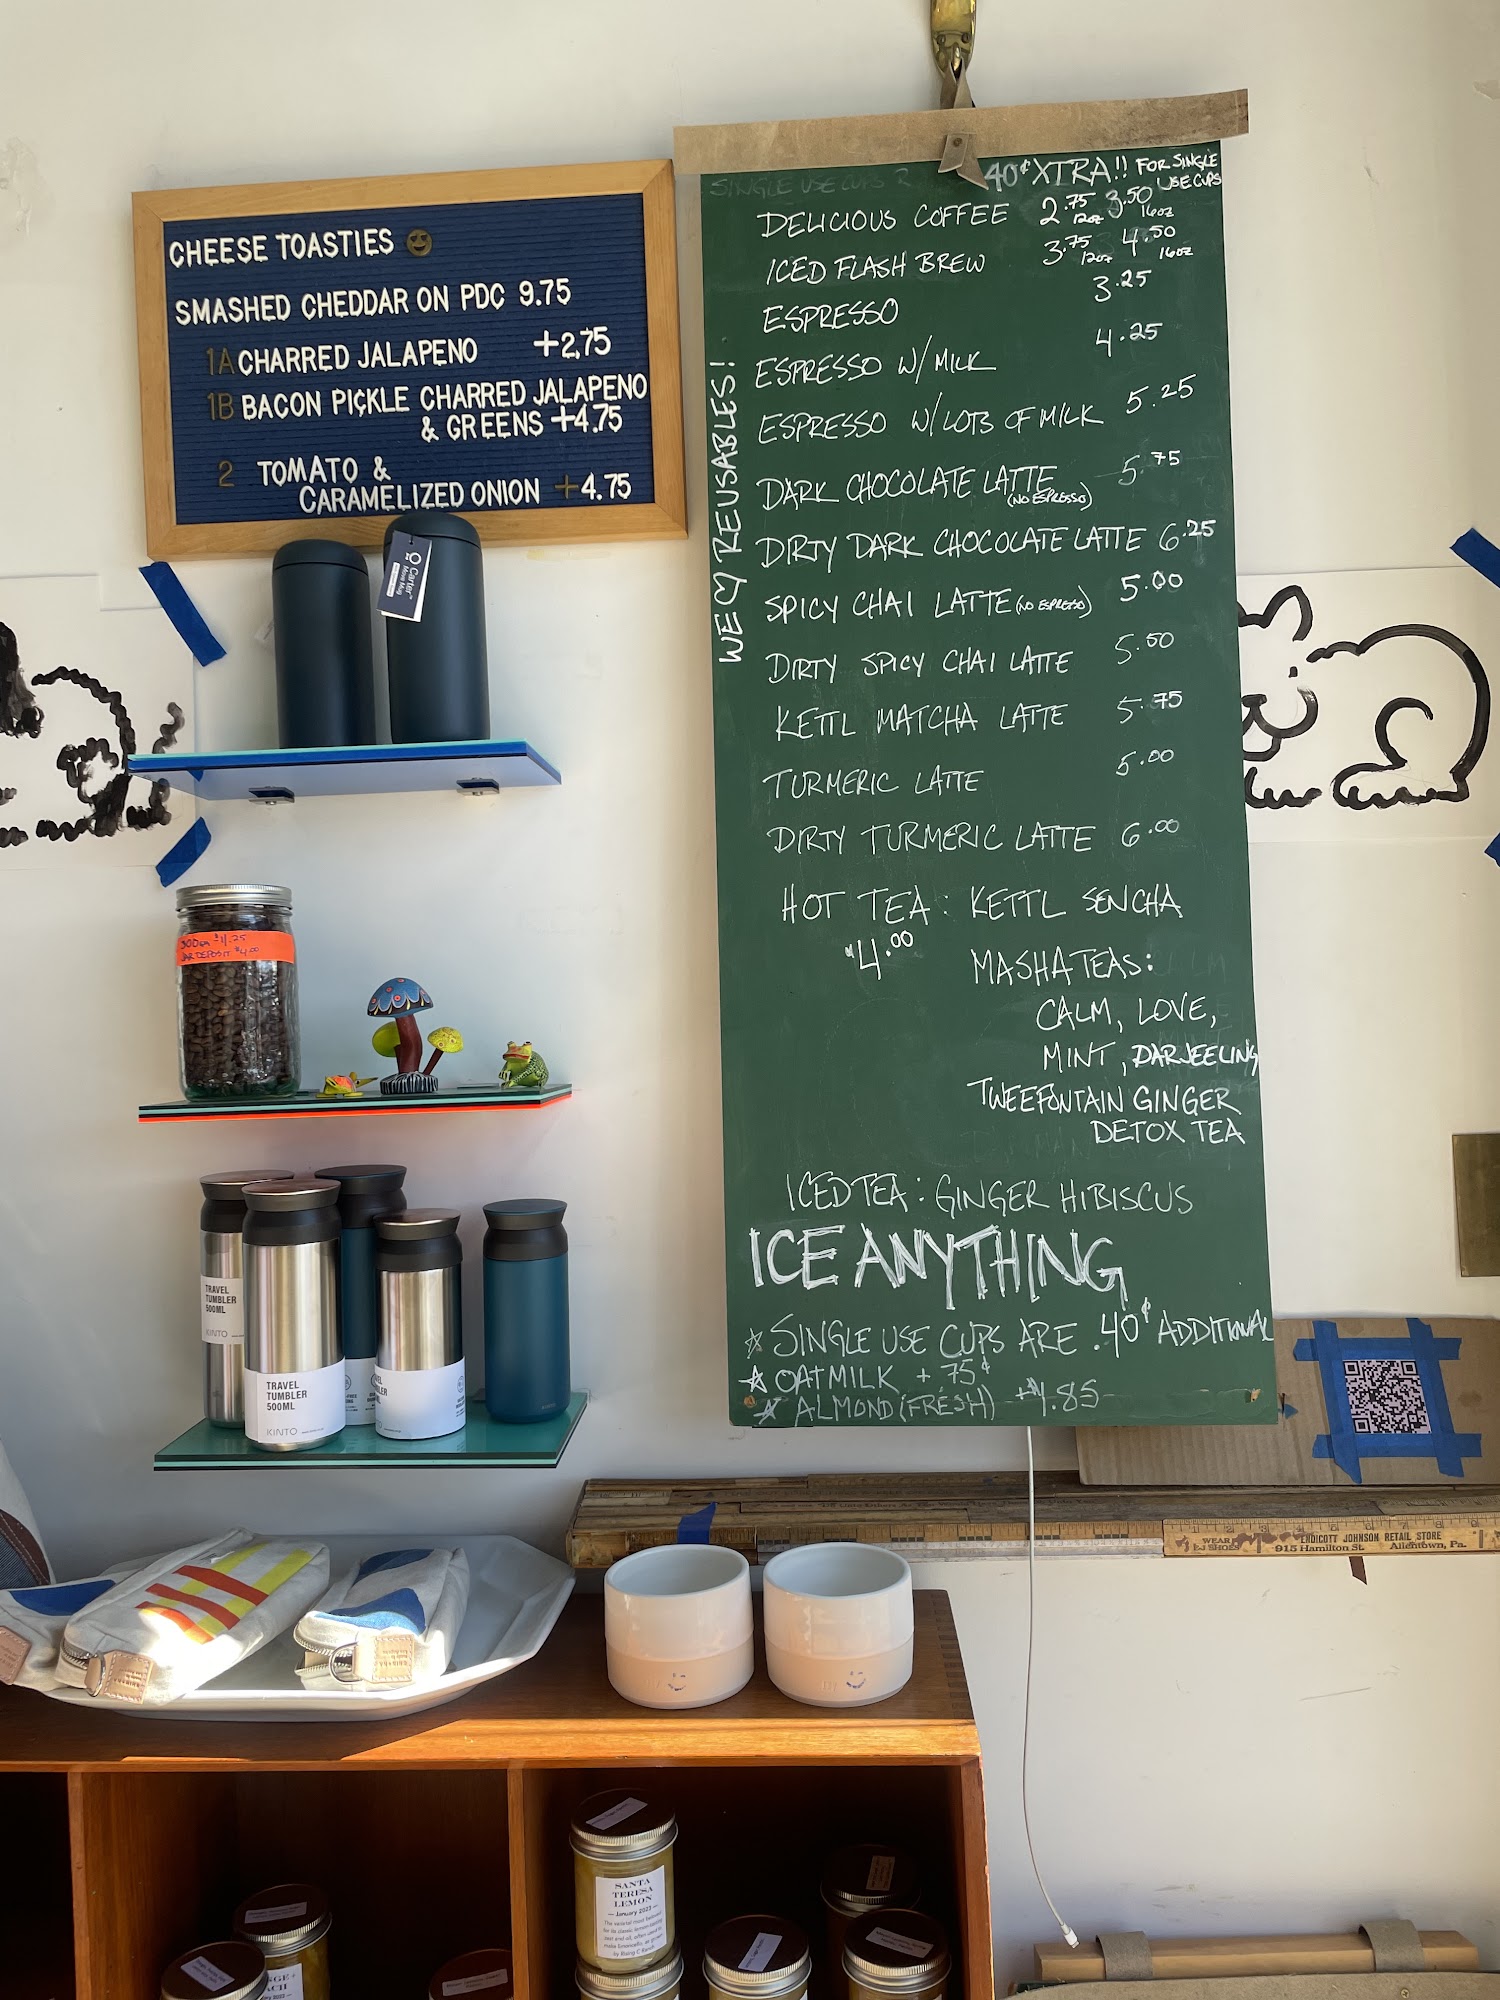 CHEESE TOASTIES
SMASHED CHEDDAR ON PDC 9.75
1A CHARRED JALAPENO +2.75
1B BACON PICKLE CHARRED JALAPENO
& GREENS +4.75
2 TOMATO &
CARAMELIZED ONION +4.75
SINGLE USE CUPS
40¢ XTRA!! FOR SINGLE
USE CUPS
DELICIOUS COFFEE 2.75 12oz 3.50 16oz
ICED FLASH BREW 3.75 12oz 4.50 16oz
ESPRESSO 3.25
ESPRESSO W/ MILK 4.25
ESPRESSO W/ LOTS OF MILK 5.25
DARK CHOCOLATE LATTE 5.75
(NO ESPRESSO)
DIRTY DARK CHOCOLATE LATTE 6.25
SPICY CHAI LATTE (NO ESPRESSO) 5.00
DIRTY SPICY CHAI LATTE 5.50
KETTL MATCHA LATTE 5.75
TURMERIC LATTE 5.00
DIRTY TURMERIC LATTE 6.00
HOT TEA: KETTL SENCHA
$4.00
MASHA TEAS:
CALM, LOVE,
MINT, DARJEELING
TWEEFONTAIN GINGER
DETOX TEA
ICED TEA: GINGER HIBISCUS
ICE ANYTHING
SINGLE USE CUPS ARE .40¢ ADDITIONAL
OATMILK + 75¢
ALMOND (FRESH) +$1.85
WE ♡ REUSABLES!
Carter™
Move Mug
JAR DEPOSIT $4.00
TRAVEL
TUMBLER
500ML
KINTO
TRAVEL
TUMBLER
500ML
KINTO
WEAR
E-J SHOES
ENDICOTT JOHNSON RETAIL STORE
915 Hamilton St. Allentown, Pa.
SANTA
TERESA
LEMON
— January 2023 —